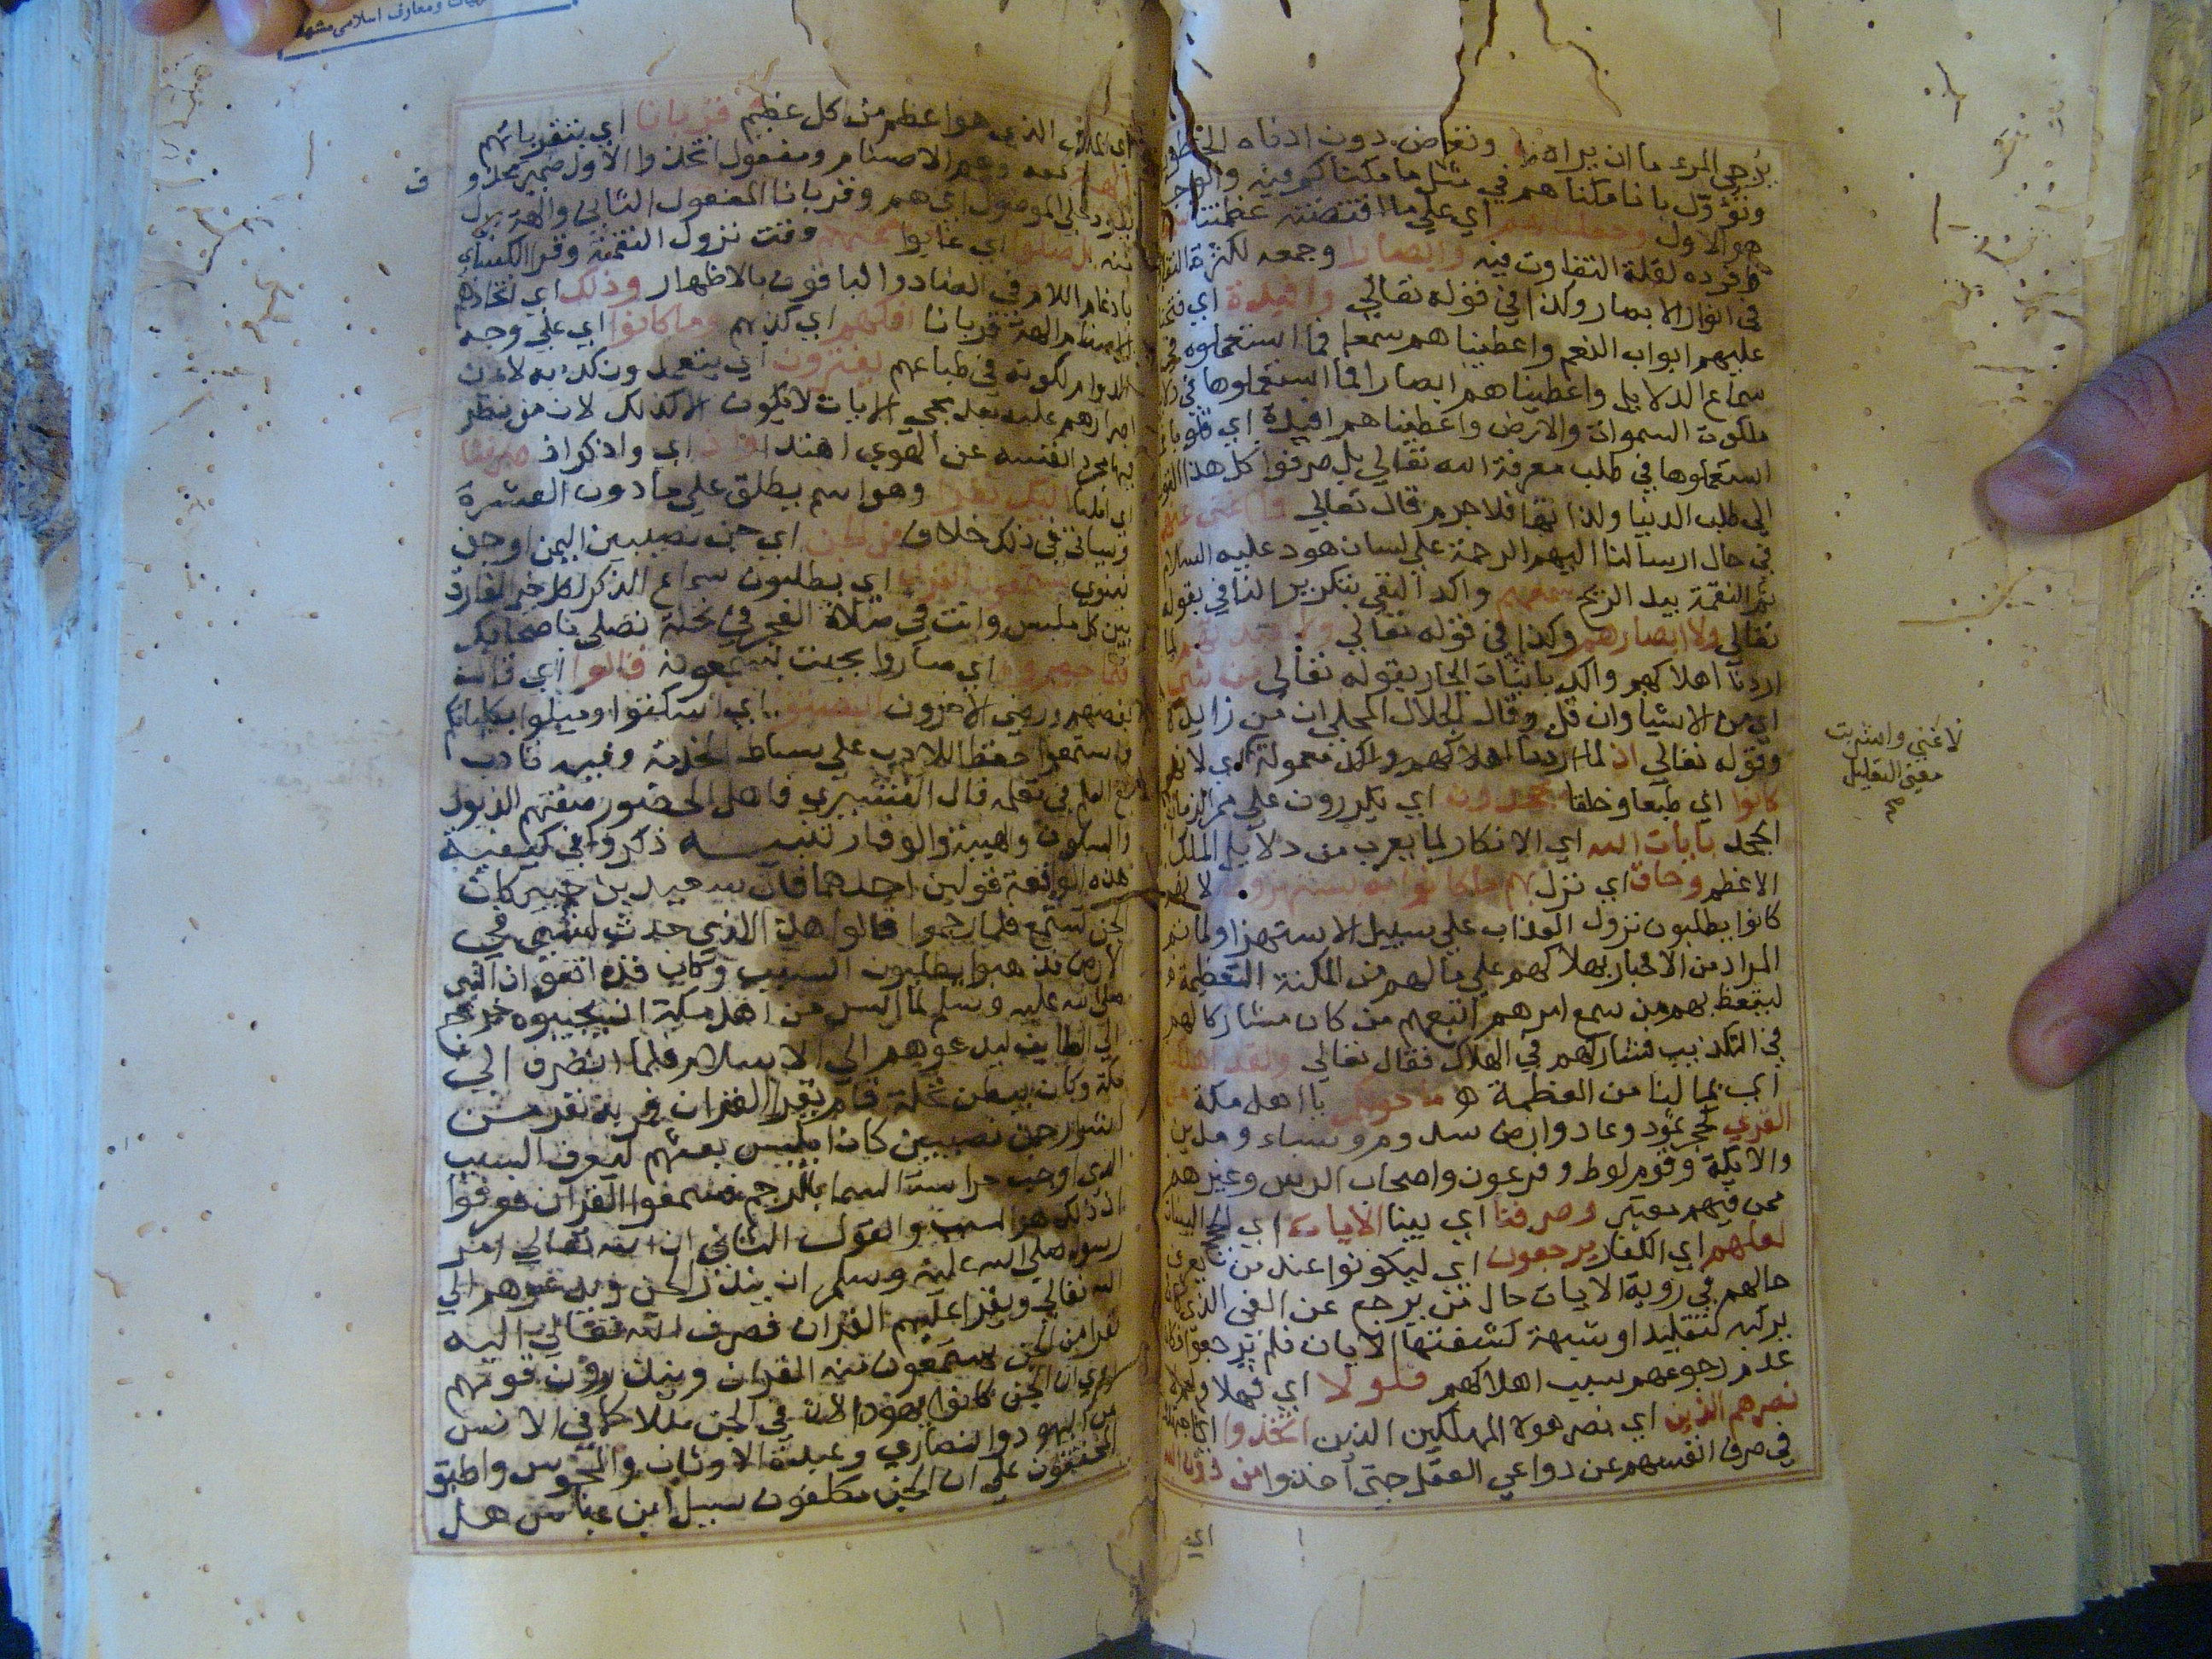 يرجي المرء ما ان يراه وتعرض دون ادناه الخطو
ونؤول بانا مكناهم في مثل ما مكناكم فيه والوجه
هو الاول وجعلنا لهم اي علي ما اقتضته عظمتنا
فافرده لقلة التفاوت فيه وابصارا وجمعه لكثرة التفا
في انوار الابصار وكذا في قوله تعالي وافيدة اي فتحنا
عليهم ابواب النعم واعطيناهم سمعا فما استعملوه في
سماع الدلايل واعطيناهم ابصارا فما استعملوها في
ملكوت السموات والارض واعطيناهم افيدة اي قلوبا
استعملوها في طلب معرفة الله تعالي بل صرفوا كل هذا القو
الي طلب الدنيا ولذاتها فلا جرم قال تعالي فما اغني عنهم
في حال ارسالنا اليهم الرحمة علي لسان هود عليه السلام
ثم النقمة بيد الريح سمعهم واكد النفي بتكرير النافي بقوله
تعالي ولا ابصارهم وكذا في قوله تعالي ولا افيدتهم لما
اردنا اهلاكهم واكد باثبات الجار بقوله تعالي من شي
اي من الاشيا وان قل وقال الجلال المحلي ان من زايدة
وقوله تعالي اذ لما اردنا اهلاكهم واكد معمولة اي لانهم
كانوا اي طبعا وخلقا يجحدون اي يكررون علي ممر الزمان
الجحد بايات الله اي الانكار لما يعرف من دلايل الملك
الاعظم وحاق اي نزل بهم ما كانوا به يستهزون لانهم
كانوا يطلبون نزول العذاب علي سبيل الاستهزا ولما تم
المراد من الاخبار بهلاكهم علي مالهم من المكنة العظيمة
ليتعظ بهم من سمع امرهم اتبعهم من كان مشاركا لهم
في التكذيب فشاركهم في الهلاك فقال تعالي ولقد اهلكنا
اي بما لنا من العظمة ما حولكم يا اهل مكة من
القري كحجر ثمود وعاد وارض سدوم وسباء ومدين
والايكة وقوم لوط وفرعون واصحاب الرس وغيرهم
ممن فيهم معتبر وصرفنا اي بينا الايات اي الحج البينات
لعلهم اي الكفار يرجعون اي ليكونوا عند من يعرف
حالهم في روية الايات حال من يرجع عن الغي الذي كان
يركبه لتقليد او شبهة كشفتها الايات فلم يرجعوا فكان
عدم رجوعهم سبب اهلاكهم فلولا اي فهلا ولم لا
نصرهم الذين اي نصر هولاء المهلكين الذين اتخذوا اي اجتهدوا
في صرف انفسهم عن دواعي العقل حتي اخذوا من دون الله
اي
لا غني واشربت
معني التعليل
صح
اي الملك الذي هو اعظم من كل عظيم قربانا اي يتقربانهم
الهة معه وهم الاصنام ومفعول اتخذوا الاول ضمير محذوف
يعود علي الموصول اي هم وقربانا المفعول الثاني والهة بدل
منه بل ضلوا اي غابوا عنهم وقت نزول النقمة وقرا الكسائي
بادغام اللام في الضاد والباقون بالاظهار وذلك اي اتخاذهم
الاصنام الهة قربانا افكهم اي كذبهم وما كانوا اي علي وجه
الدوام لكونه في طباعهم يفترون اي يتعمدون كذبه لان
اصرارهم عليه بعد مجي الايات لا يكون الا كذلك لان من نظر
فيها مجردا نفسه عن الهوي اهتدا واذ اي واذكر اذ صرفنا
اي املنا اليك نفرا وهو اسم يطلق علي ما دون العشرة
وسياتي في ذلك خلاف من الجن اي جن نصيبين اليمن او جن
نينوي يستمعون القران اي يطلبون سماع الذكر الكاحر الفارق
بين كل ملبس وانت في صلاة الفجر في نخلة تصلي باصحابك
فلما حضروه اي صاروا بحيث يسمعونه قالوا اي قال
بعضهم ورضي الاخرون انصتوا اي اسكتوا وميلوا بكليتكم
واستمعوا حفظا للادب علي بساط الخدمة وفيه تادب
مع العلم في تعلمه قال القشيري فاهل الحضور صفتهم الذبول
والسكون والهيبة والوقار تنبيه ذكروا في كيفية
هذه الواقعة قولين احدهما قال سعيد بن جبير كانت
الجن تستمع فلما رجموا قالوا هذا الذي حدث لشي في
الارض فذهبوا يطلبون السبب وكان قد اتفق ان النبي
صلي الله عليه وسلم لما ايس من اهل مكة ان يجيبوه خرج
الي الطايف ليدعوهم الي الاسلام فلما انصرف الي
مكة وكان ببطن نخلة قام يقرا القران فمر به نفر من
اشراف جن نصيبين كان ابليس بعثهم ليعرف السبب
الذي اوجب حراسة السما بالرجم فسمعوا القران فعرفوا
ان ذلك هو السبب والقول الثاني ان الله تعالي امر
رسوله صلي الله عليه وسلم ان ينذر الجن ويدعوهم الي
الله تعالي ويقرا عليهم القران فصرف الله تعالي اليه
نفرا من الجن يستمعون منه القران وينذرون قومهم
روي ان الجن كانوا يهودا لان في الجن مللا كما في الانس
من اليهود والنصاري وعبدة الاوثان والمجوس واطبق
المحققون علي ان الجن مكلفون سيل ابن عباس هل
ف
ومعارف اسلامی مشهد